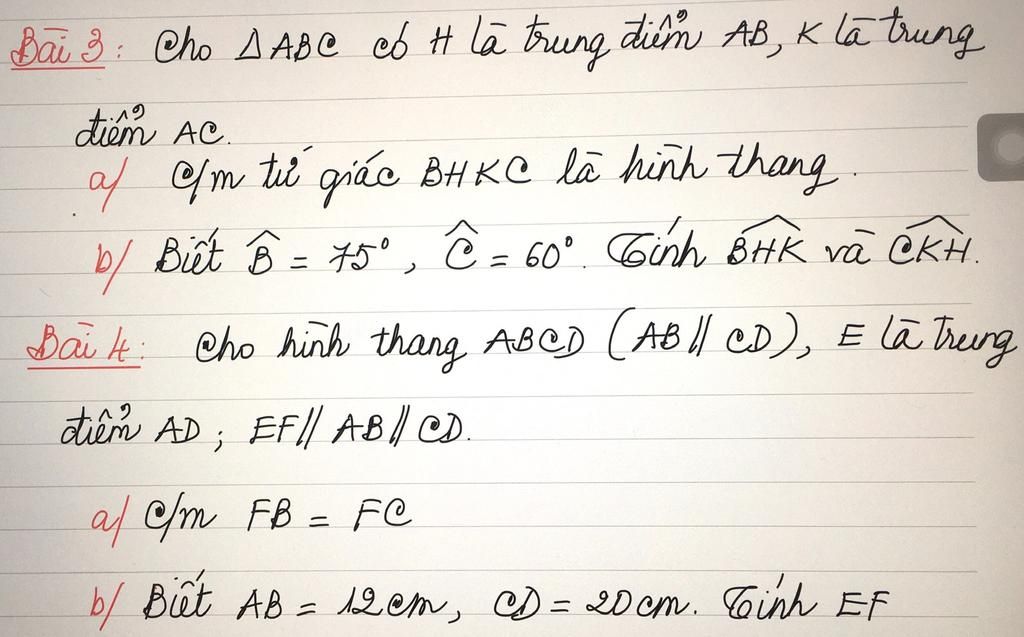 Bài 3: Cho ΔABC có H là trung điểm AB, K là trung
điểm AC.
a/ C/m tứ giác BHKC là hình thang.
b/ Biết B̂ = 75°, Ĉ = 60°. Tính B͡HK và C͡KH.
Bài 4: Cho hình thang ABCD (AB // CD), E là trung
điểm AD; EF // AB // CD.
a/ C/m FB = FC
b/ Biết AB = 12cm, CD = 20cm. Tính EF